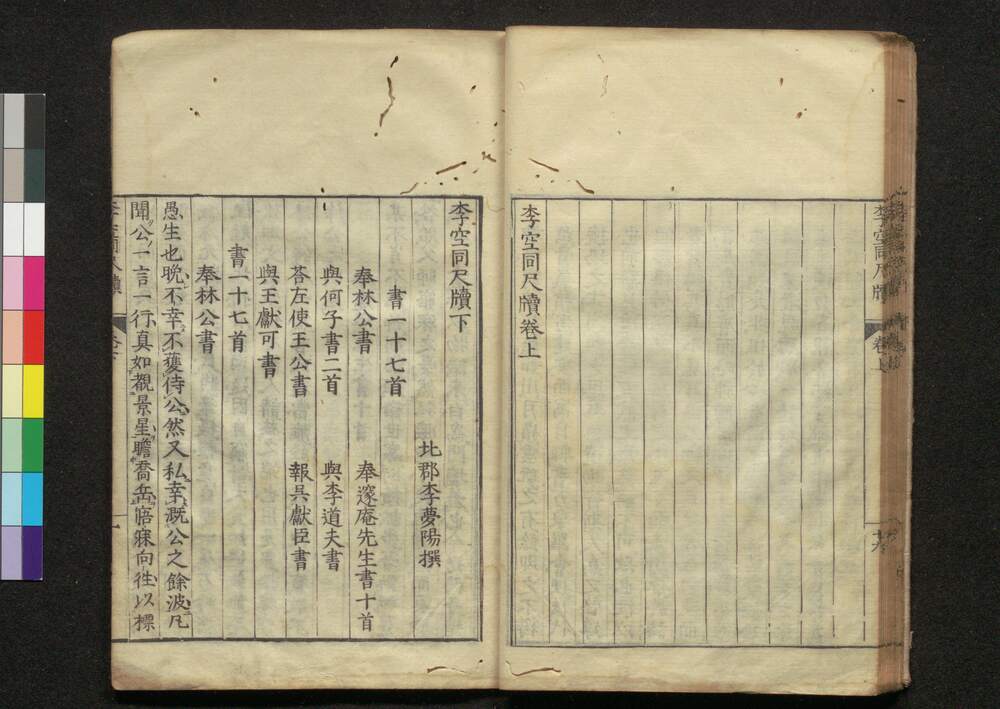 李空同尺牘 卷上
李空同尺牘卷上
李空同尺牘下
北郡李夢陽撰
書一十七首
奉林公書 奉邃庵先生書十首
與何子書二首 與李道夫書
荅左使王公書 報吳獻臣書
與王獻可書
書一十七首
奉林公書
愚生也晚不幸不獲侍公然又私幸溉公之餘波凡
聞公一言一行真如覩景星瞻喬岳寤寐向徃以標
李空同尺牘